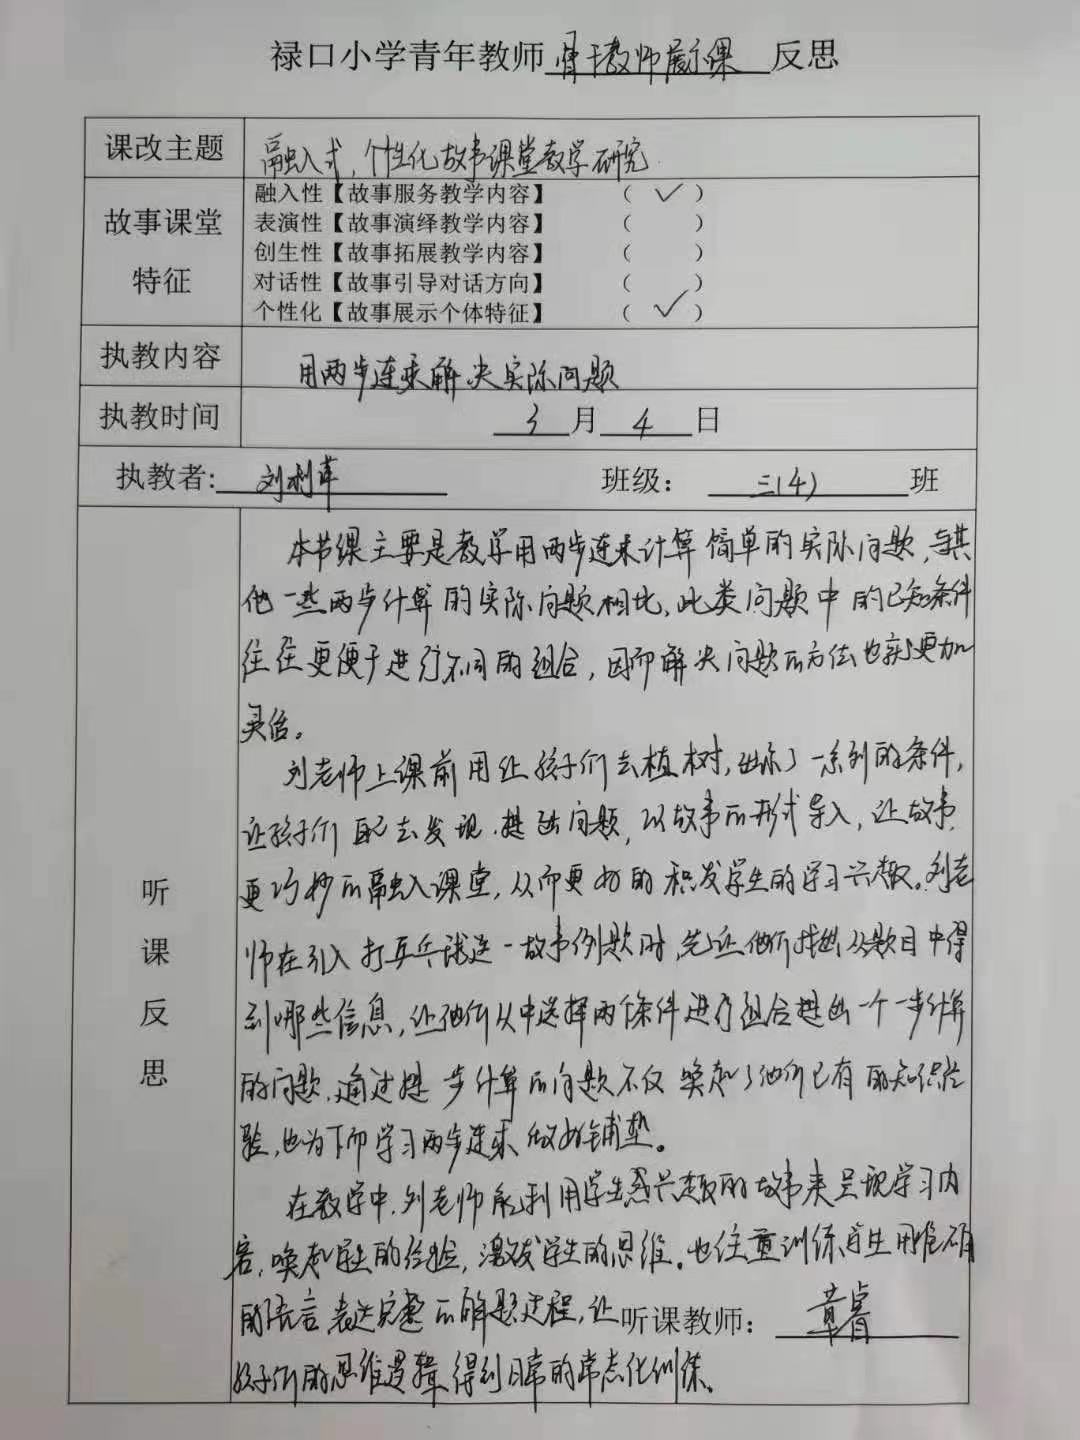 禄口小学青年教师骨干教师展示课反思
课改主题 融入式,个性化故事课堂教学研究
故事课堂特征
融入性【故事服务教学内容】 ( ✓ )
表演性【故事演绎教学内容】 ( )
创生性【故事拓展教学内容】 ( )
对话性【故事引导对话方向】 ( )
个性化【故事展示个体特征】 ( ✓ )
执教内容 用两步连乘解决实际问题
执教时间 3月4日
执教者: 刘利萍 班级: 三(4)班
听课反思
本节课主要是教学用两步连乘计算简单的实际问题,与其
他一些两步计算的实际问题相比,此类问题中的已知条件
往往更便于进行不同的组合,因而解决问题的方法也就更加
灵活。
刘老师上课前用让孩子们去植树,出示了一系列的条件,
让孩子们自己去发现.提出问题,以故事的形式导入,让故事
更巧妙的融入课堂,从而更好的积发学生的学习兴趣。刘老
师在引入打乒乓球这一故事例题时,先让他们找出从题目中得
到哪些信息,让他们从中选择两个条件进行组合提出一个一步计算
的问题.通过提一步计算的问题不仅唤起了他们已有的知识经
验,也为下面学习两步连乘做好铺垫。
在教学中,刘老师能利用学生感兴趣的故事来呈现学习内
容,唤起学生的经验,激发学生的思维。也注重训练学生用准确
的语言表达完整的解题过程,让
听课教师: 章睿
孩子们的思维逻辑得到日常的常态化训练。